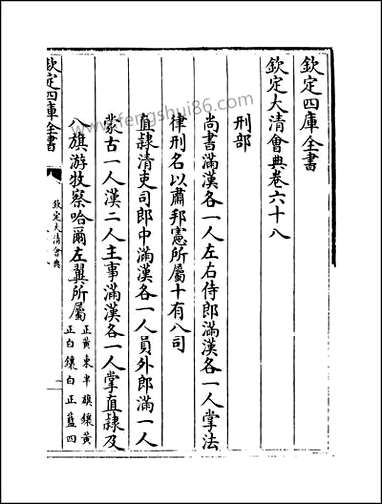 欽定四庫全書
欽定大清會典卷六十八
刑部
尚書滿漢各一人左右侍郎滿漢各一人掌法
律刑名以肅邦憲所屬十有八司
直隸清吏司郎中滿漢各一人員外郎滿一人
蒙古一人漢二人主事滿漢各一人掌直隸及
八旗游牧察哈爾左翼所屬正黃東半旗鑲黃
正白鑲白正藍四
欽定四庫全書
欽定大清會典
一
www.fengshui86.com